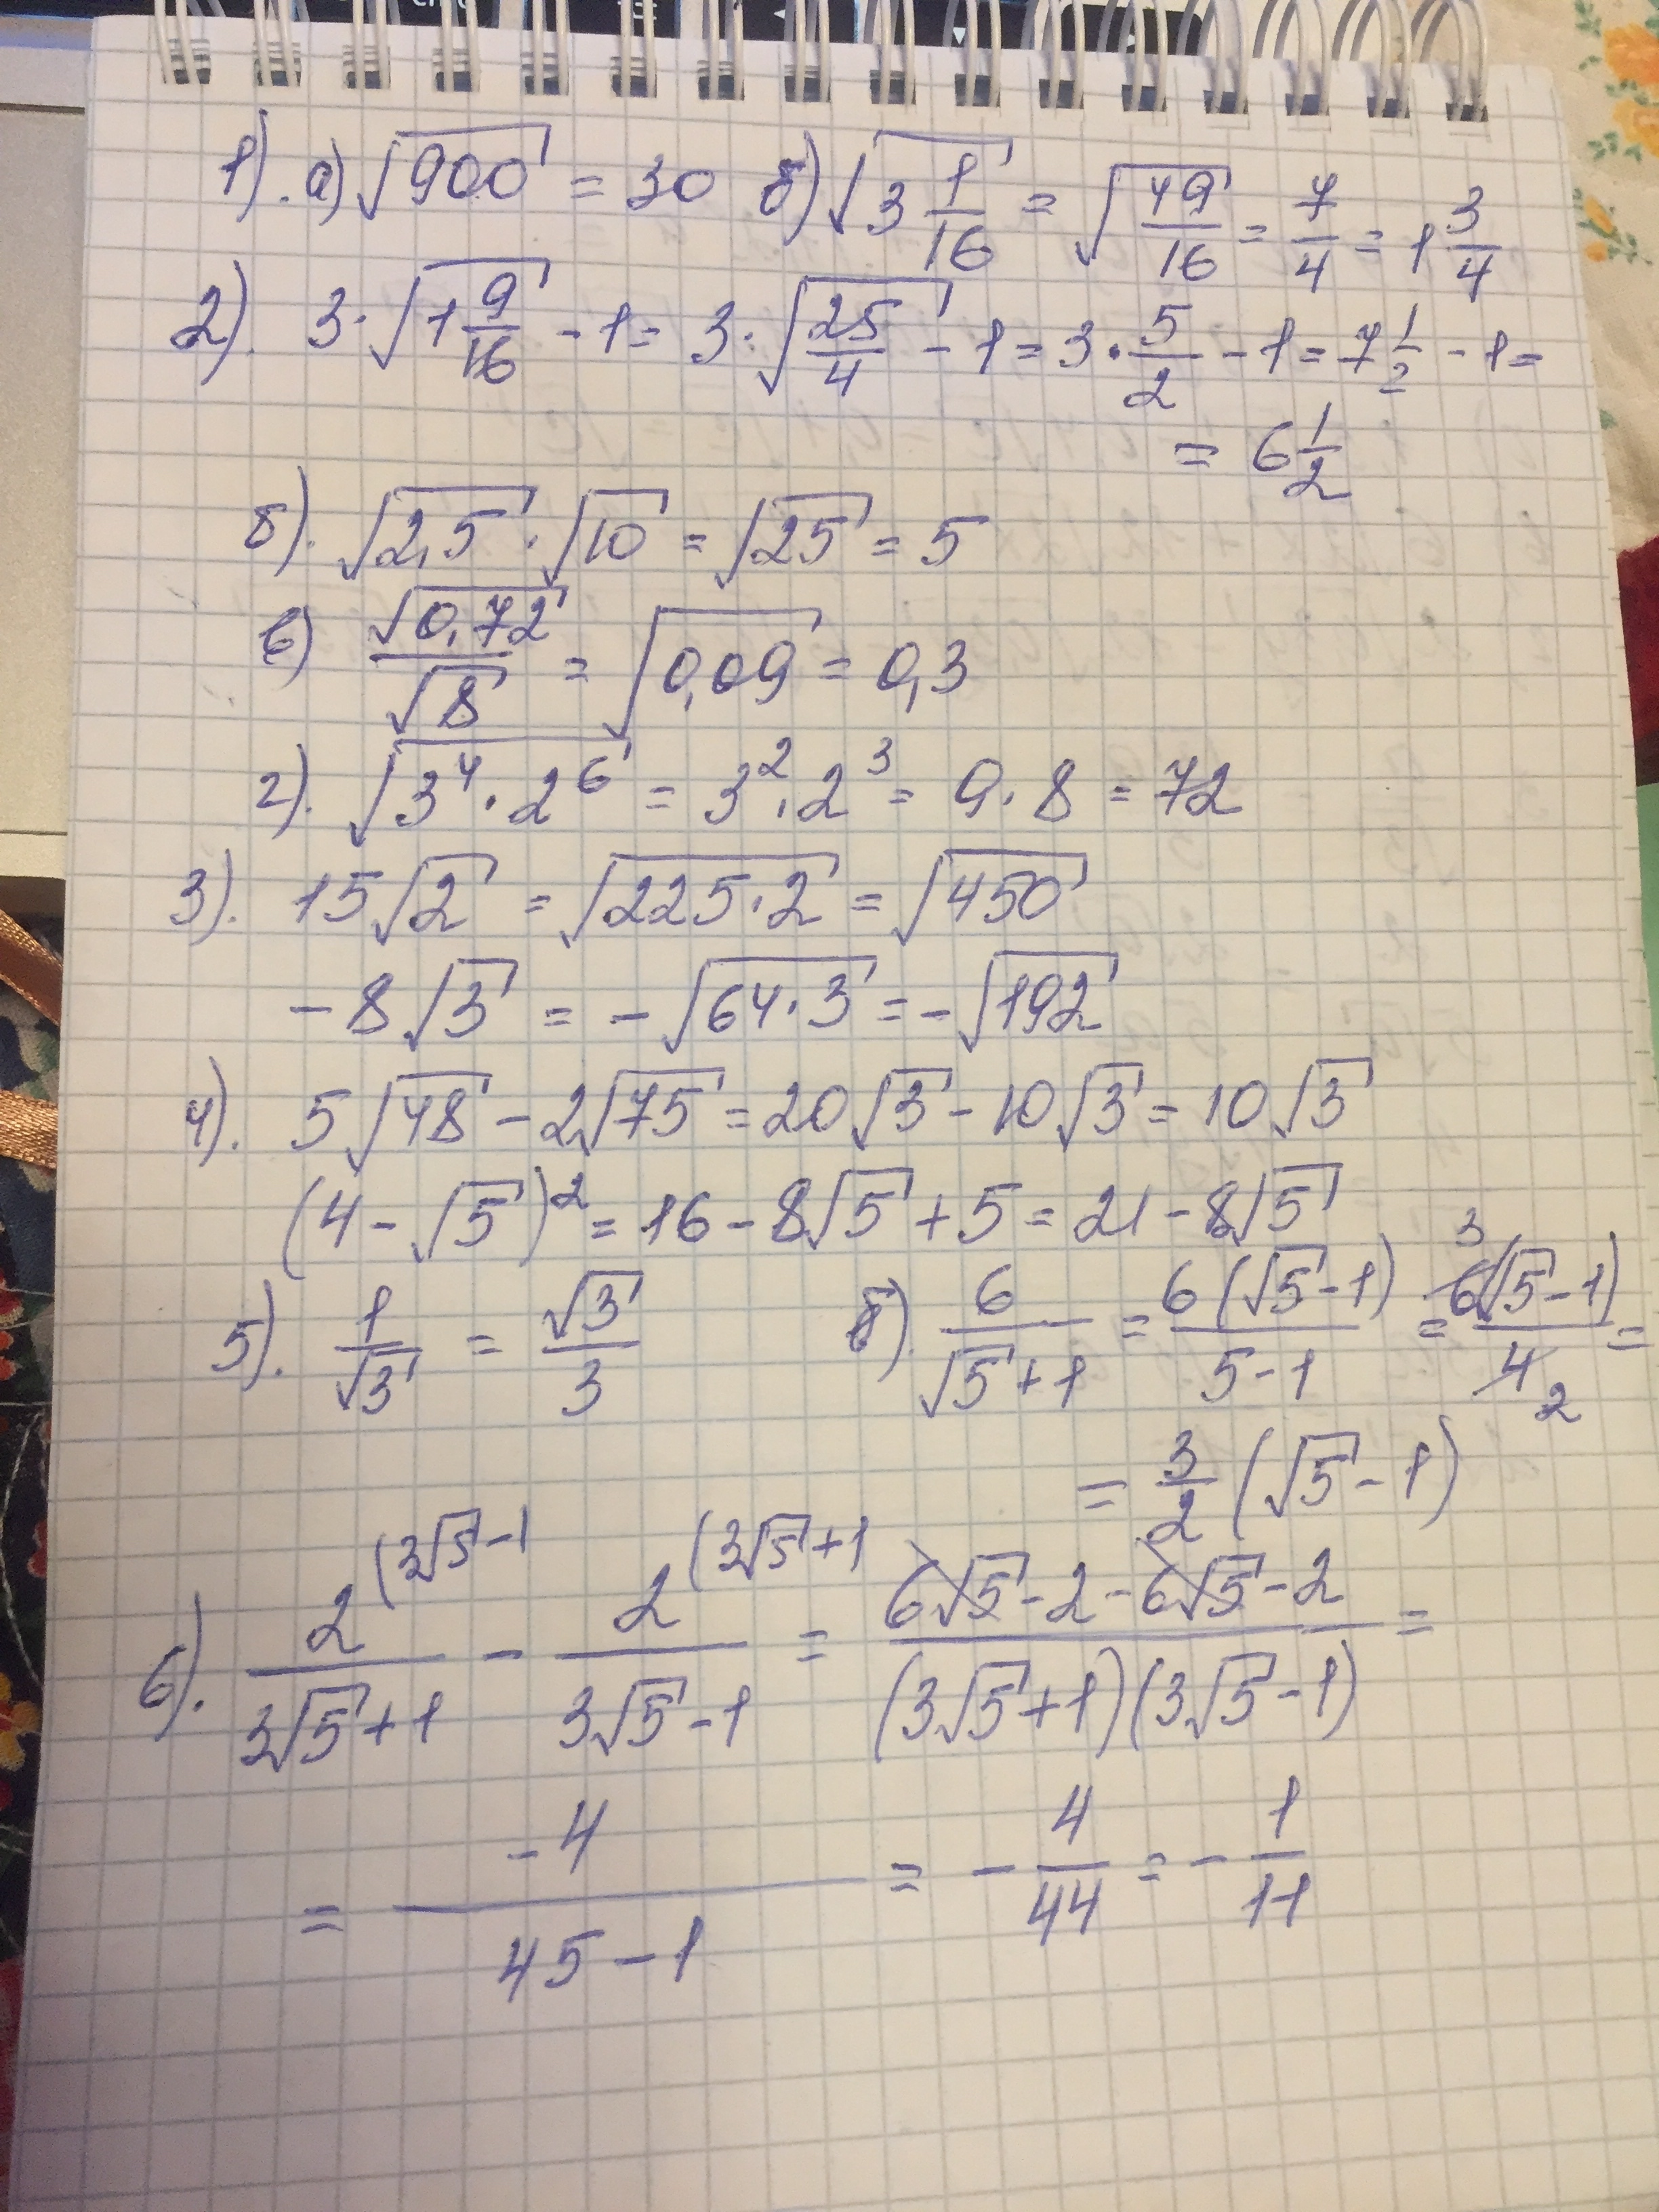 1). а) √900 = 30 б) √3 1/16 = √49/16 = 7/4 = 1 3/4
2). 3·√1 9/16 - 1 = 3·√25/4 - 1 = 3·5/2 - 1 = 7 1/2 - 1 =
= 6 1/2
б). √2,5 · √10 = √25 = 5
в) √0,72/√8 = √0,09 = 0,3
г). √3⁴·2⁶ = 3²·2³ = 9·8 = 72
3). 15√2 = √225·2 = √450
-8√3 = -√64·3 = -√192
4). 5√48 - 2√75 = 20√3 - 10√3 = 10√3
(4-√5)² = 16 - 8√5 + 5 = 21 - 8√5
5). 1/√3 = √3/3 б). 6/(√5+1) = 6(√5-1)/(5-1) = 3 6(√5-1)/4 2 =
= 3/2 (√5-1)
6). 2 (3√5-1/(3√5+1) - 2 (3√5+1/(3√5-1) = (6√5-2-6√5-2)/((3√5+1)(3√5-1)) =
= -4/(45-1) = - 4/44 = - 1/11